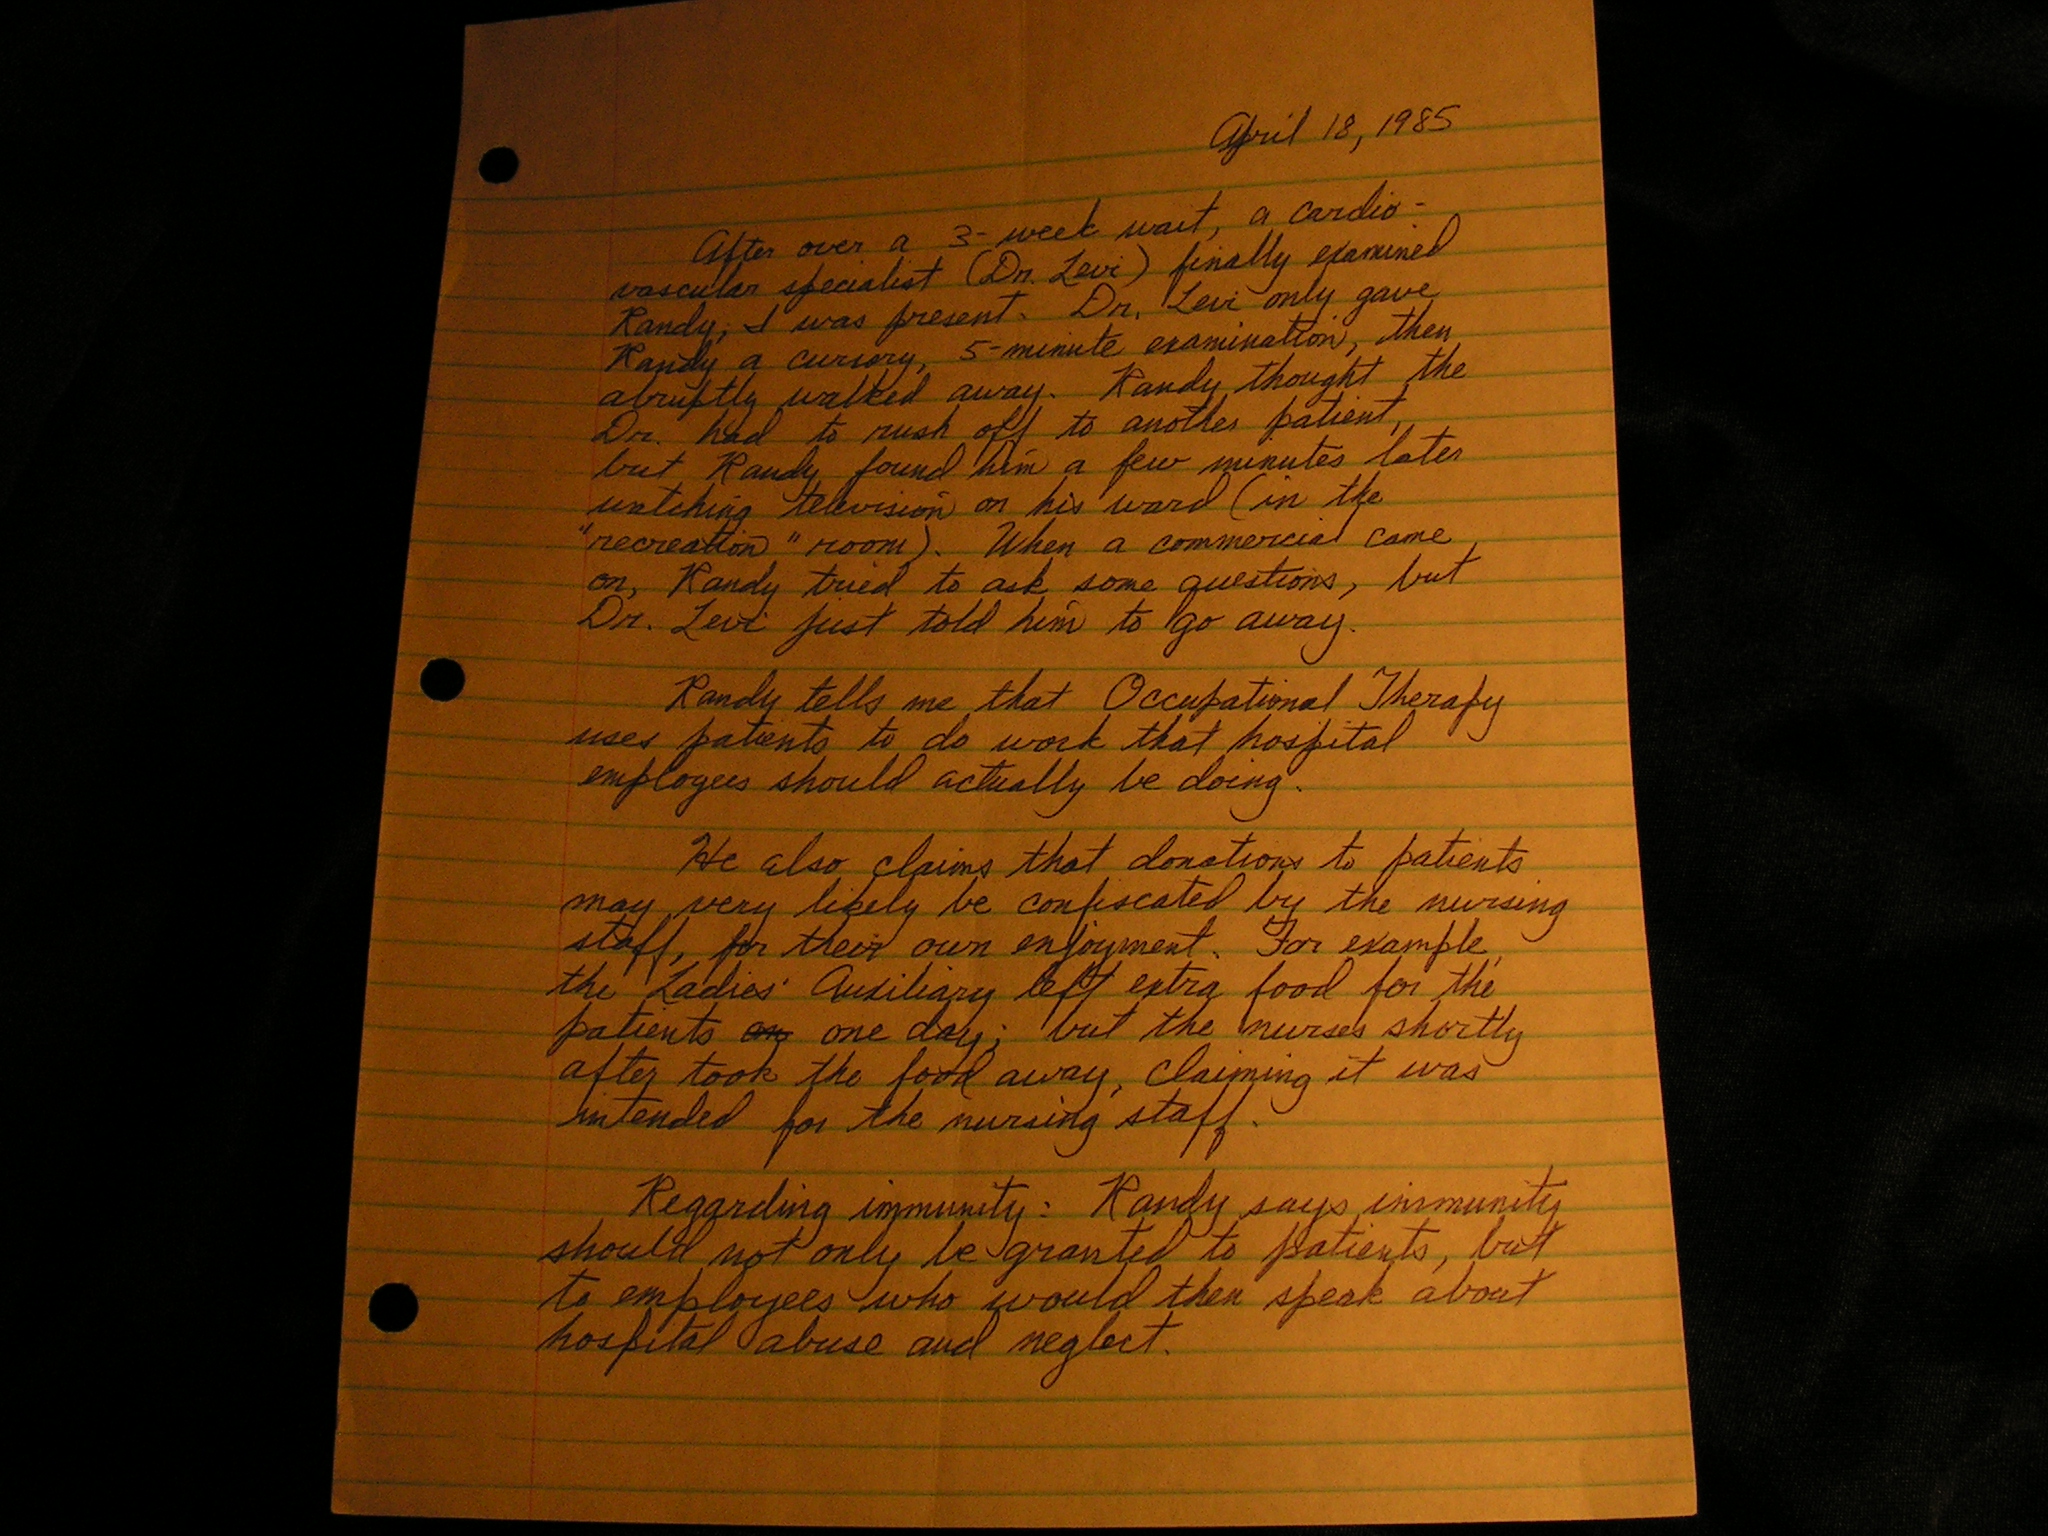 April 18, 1985
After over a 3-week wait, a cardio-
vascular specialist (Dr. Levi) finally examined
Randy; I was present. Dr. Levi only gave
Randy a cursory, 5-minute examination, then
abruptly walked away. Randy thought the
Dr. had to rush off to another patient,
but Randy found him a few minutes later
watching television on his ward (in the
"recreation" room). When a commercial came
on, Randy tried to ask some questions, but
Dr. Levi just told him to go away.
Randy tells me that Occupational Therapy
uses patients to do work that hospital
employees should actually be doing.
He also claims that donations to patients
may very likely be confiscated by the nursing
staff, for their own enjoyment. For example,
the Ladies' Auxiliary left extra food for the
patients on one day; but the nurses shortly
after took the food away, claiming it was
intended for the nursing staff.
Regarding immunity: Randy says immunity
should not only be granted to patients, but
to employees who would then speak about
hospital abuse and neglect.